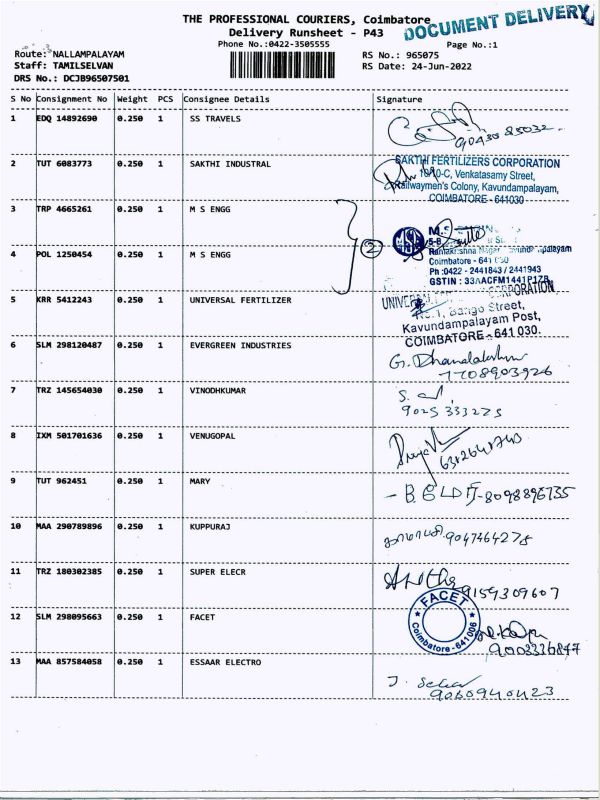 THE PROFESSIONAL COURIERS, Coimbatore
DOCUMENT DELIVERY
Delivery Runsheet - P43
Phone No.:0422-3505555
Page No.:1
Route: NALLAMPALAYAM
RS No.: 965075
Staff: TAMILSELVAN
RS Date: 24-Jun-2022
DRS No.: DCJB96507501
S No Consignment No Weight PCS Consignee Details Signature
1 EDQ 14892690 0.250 1 SS TRAVELS
2 TUT 6083773 0.250 1 SAKTHI INDUSTRAL
SAKTHI FERTILIZERS CORPORATION
Venkatasamy Street,
Railwaymen's Colony, Kavundampalayam,
COIMBATORE - 641030
3 TRP 4665261 0.250 1 M S ENGG
2
4 POL 1250454 0.250 1 M S ENGG
Coimbatore - 641 030
Ph :0422 - 2441843 / 2441943
GSTIN : 33AACFM1441P1ZB
5 KRR 5412243 0.250 1 UNIVERSAL FERTILIZER
CORPORATION
Street,
Kavundampalayam Post,
COIMBATORE - 641 030.
6 SLM 298120487 0.250 1 EVERGREEN INDUSTRIES
7708903926
7 TRZ 145654030 0.250 1 VINODHKUMAR
9025 333275
8 IXM 501701636 0.250 1 VENUGOPAL
9 TUT 962451 0.250 1 MARY
8098896735
10 MAA 290789896 0.250 1 KUPPURAJ
9047464278
11 TRZ 180302385 0.250 1 SUPER ELECR
9159309607
12 SLM 298095663 0.250 1 FACET
FACET
Coimbatore - 641006
13 MAA 857584058 0.250 1 ESSAAR ELECTRO